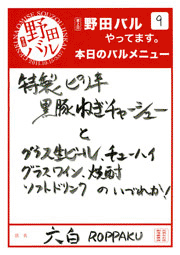 野田バル
野田バル
やってます。
本日のバルメニュー
9
特製ピリ辛
黒豚ねぎチャーシュー
と
グラス生ビール、チューハイ
グラスワイン、焼酎
ソフトドリンク のいづれか!
店名
六白 ROPPAKU